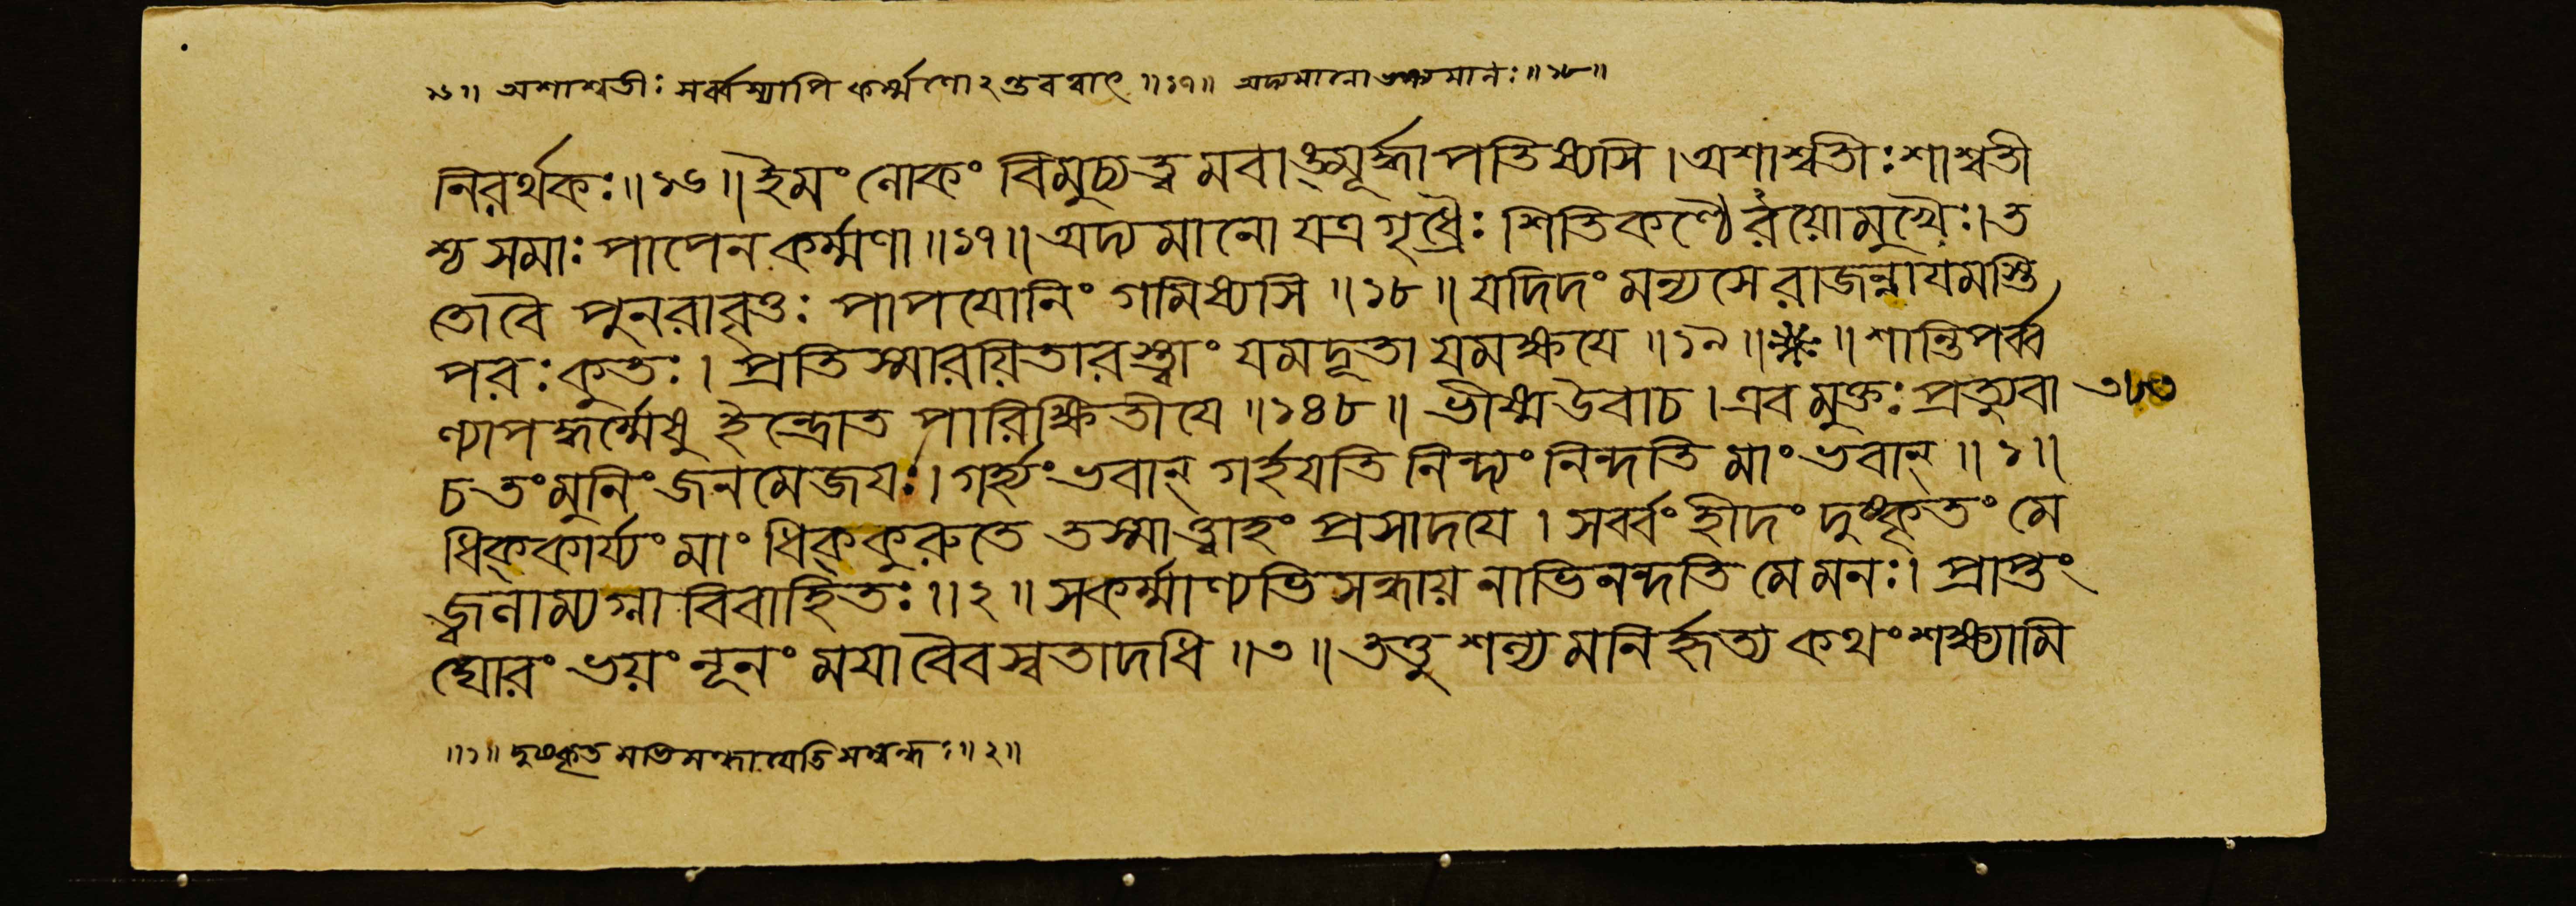 ১৬॥ অশাশ্বতীঃ সর্ব্বস্যাপি কর্ম্মণোঽধ্রুবত্বাৎ ॥১৭॥ অদ্যমানো ভক্ষ্যমানঃ॥১৮॥
নিরর্থকঃ॥১৬॥ইমং লোকং বিমুচ্য ত্বমবাঙ্মূর্দ্ধা পতিষ্যসি । অশাশ্বতীঃ শাশ্বতী
শ্চ সমাঃ পাপেন কর্ম্মণা॥১৭॥অদ্যমানো যত্র গৃধ্রৈঃ শিতিকণ্ঠৈরয়োমুখৈঃ। ত
তো বৈ পুনরাবৃত্তঃ পাপযোনিং গমিষ্যসি ॥১৮॥ যদিদং মন্যসে রাজন্নায়মস্তি
পরঃ কুতঃ। প্রতিস্মারয়িতারস্ত্বাং যমদূতা যমক্ষয়ে ॥১৯॥ ॥ শান্তিপর্ব্ব
ণ্যাপদ্ধর্ম্মেষু ইন্দ্রোত পারিক্ষিতীয়ে ॥১৪৮॥ ভীষ্ম উবাচ । এবমুক্তঃ প্রত্যুবা
চ তং মুনিং জনমেজয়ঃ। গর্হ্যং ভবান্ গর্হয়তি নিন্দ্যং নিন্দতি মাং ভবান্ ॥১॥
ধিক্কার্য্যং মাং ধিক্কুরুতে তস্মাত্ত্বাহং প্রসাদয়ে । সর্ব্বং হীদং দুষ্কৃতং মে
জ্বলাম্যগ্নাবিবাহিতঃ॥২॥ সকর্ম্মাণ্যভিসন্ধায় নাভিনন্দতি মে মনঃ। প্রাপ্তং
ঘোরং ভয়ং নূনং ময়া বৈবস্বতাদধি ॥৩॥ তত্তু শল্যমনির্হৃত্য কথং শক্ষ্যামি
॥১॥ দুষ্কৃতমভিসন্ধায়েতি সম্বন্ধঃ॥২॥